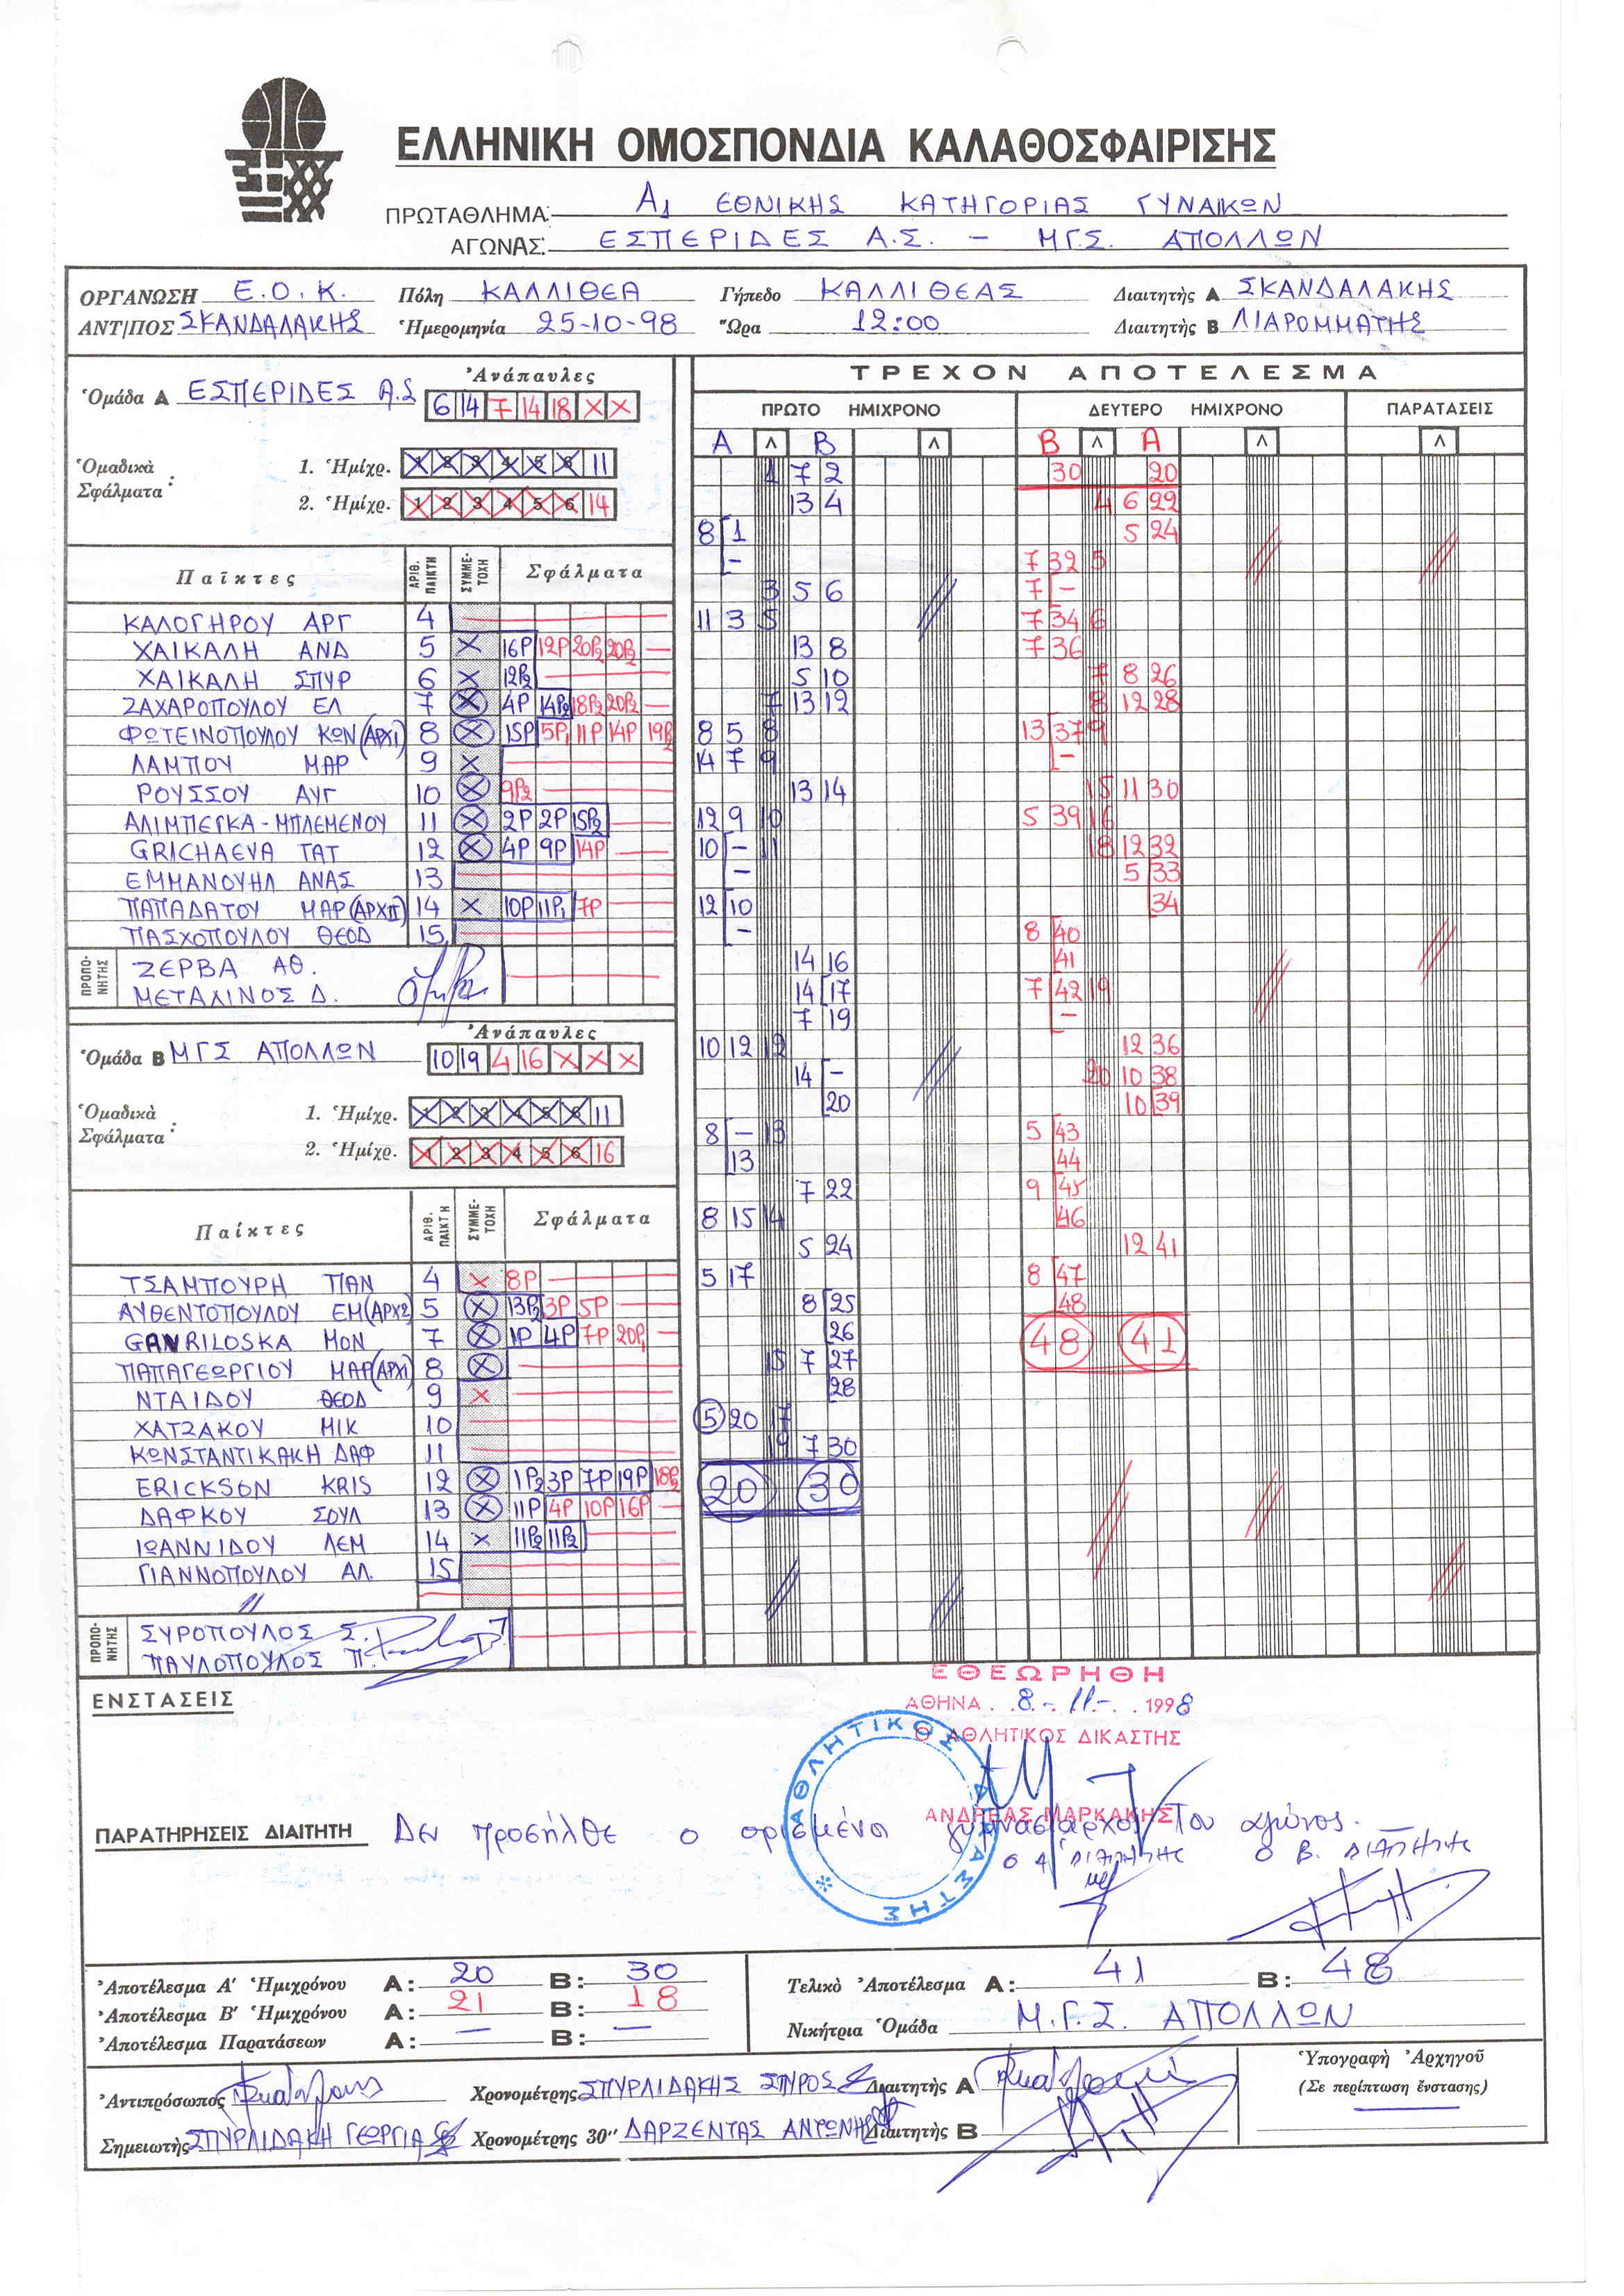 ΕΛΛΗΝΙΚΗ ΟΜΟΣΠΟΝΔΙΑ ΚΑΛΑΘΟΣΦΑΙΡΙΣΗΣ
ΠΡΩΤΑΘΛΗΜΑ: Α1 ΕΘΝΙΚΗΣ ΚΑΤΗΓΟΡΙΑΣ ΓΥΝΑΙΚΩΝ
ΑΓΩΝΑΣ: ΕΣΠΕΡΙΔΕΣ Α.Σ. – Μ.Γ.Σ. ΑΠΟΛΛΩΝ
ΟΡΓΑΝΩΣΗ Ε.Ο.Κ. Πόλη ΚΑΛΛΙΘΕΑ Γήπεδο ΚΑΛΛΙΘΕΑΣ Διαιτητὴς Α ΣΚΑΝΔΑΛΑΚΗΣ
ΑΝΤ/ΠΟΣ ΣΚΑΝΔΑΛΑΚΗΣ Ἡμερομηνία 25-10-98 Ὥρα 12:00 Διαιτητὴς Β ΛΙΑΡΟΜΜΑΤΗΣ
Ὁμάδα Α ΕΣΠΕΡΙΔΕΣ Α.Σ
Ἀνάπαυλες
6 14 7 14 18 X X
Ὁμαδικὰ Σφάλματα:
1. Ἡμίχρ. 1 2 3 4 5 6 11
2. Ἡμίχρ. 1 2 3 4 5 6 14
Παῖκτες ΑΡΙΘ. ΠΑΙΚΤΗ ΣΥΜΜΕΤΟΧΗ Σφάλματα
ΚΑΛΟΓΗΡΟΥ ΑΡΓ 4
ΧΑΙΚΑΛΗ ΑΝΔ 5 X 16P 12P 20P2 20P2
ΧΑΙΚΑΛΗ ΣΠΥΡ 6 X 12P2
ΖΑΧΑΡΟΠΟΥΛΟΥ ΕΛ 7 X 4P 14P2 18P2 20P2
ΦΩΤΕΙΝΟΠΟΥΛΟΥ ΚΩΝ (ΑΡΧΙ) 8 X 15P 5P1 11P 14P 19P2
ΛΑΜΠΟΥ ΜΑΡ 9 X
ΡΟΥΣΣΟΥ ΑΥΓ 10 X 9P2
ΑΛΙΜΠΕΓΚΑ-ΜΠΛΕΜΕΝΟΥ 11 X 2P 2P 15P2
GRICHAEVA TAT 12 X 4P 9P 14P
ΕΜΜΑΝΟΥΗΛ ΑΝΑΣ 13
ΠΑΠΑΔΑΤΟΥ ΜΑΡ (ΑΡΧΙΙ) 14 X 10P 11P1 7P
ΠΑΣΧΟΠΟΥΛΟΥ ΘΕΟΔ 15
ΠΡΟΠΟΝΗΤΗΣ
ΖΕΡΒΑ ΑΘ.
ΜΕΤΑΛΙΝΟΣ Δ.
Ὁμάδα Β ΜΓΣ ΑΠΟΛΛΩΝ
Ἀνάπαυλες
10 19 4 16 X X X
Ὁμαδικὰ Σφάλματα:
1. Ἡμίχρ. 1 2 3 4 5 6 11
2. Ἡμίχρ. 1 2 3 4 5 6 16
Παίκτες ΑΡΙΘ. ΠΑΙΚΤΗ ΣΥΜΜΕΤΟΧΗ Σφάλματα
ΤΣΑΜΠΟΥΡΗ ΠΑΝ 4 X 8P
ΑΥΘΕΝΤΟΠΟΥΛΟΥ ΕΜ (ΑΡΧ2) 5 X 13P2 3P 5P
GAVRILOSKA MON 7 X 1P 4P 7P 20P1
ΠΑΠΑΓΕΩΡΓΙΟΥ ΜΑΡ (ΑΡΧΙ) 8 X
ΝΤΑΙΔΟΥ ΘΕΟΔ 9 X
ΧΑΤΖΑΚΟΥ ΜΙΚ 10
ΚΩΝΣΤΑΝΤΙΚΑΚΗ ΔΑΦ 11
ERICKSON KRIS 12 X 1P2 3P 7P 19P 18P2
ΔΑΦΚΟΥ ΣΟΥΛ 13 X 11P 4P 10P 16P
ΙΩΑΝΝΙΔΟΥ ΛΕΜ 14 X 11P2 11P2
ΓΙΑΝΝΟΠΟΥΛΟΥ ΑΛ. 15
ΠΡΟΠΟΝΗΤΗΣ
ΣΥΡΟΠΟΥΛΟΣ Σ.
ΠΑΥΛΟΠΟΥΛΟΣ Π.
ΤΡΕΧΟΝ ΑΠΟΤΕΛΕΣΜΑ
ΠΡΩΤΟ ΗΜΙΧΡΟΝΟ ΔΕΥΤΕΡΟ ΗΜΙΧΡΟΝΟ ΠΑΡΑΤΑΣΕΙΣ
Α Λ Β Λ Β Λ Α Λ Λ
1 7 2 30 20
13 4 4 6 22
8 1 5 24
– 7 32 5
3 5 6 7 –
11 3 5 7 34 6
13 8 7 36
5 10 7 8 26
7 13 12 8 12 28
8 5 8 13 37 9
14 7 9 –
13 14 15 11 30
12 9 10 5 39 16
10 – 11 18 12 32
– 5 33
12 10 34
– 8 40
14 16 41
14 17 7 42 19
7 19 –
10 12 12 12 36
14 – 20 10 38
20 10 39
8 – 13 5 43
13 44
7 22 9 45
8 15 14 46
5 24 12 41
5 17 8 47
8 25 48
26 48 41
15 7 27
28
5 20 17
19 7 30
20 30
ΕΝΣΤΑΣΕΙΣ
ΕΘΕΩΡΗΘΗ
ΑΘΗΝΑ 8-11-1998
Ο ΑΘΛΗΤΙΚΟΣ ΔΙΚΑΣΤΗΣ
ΑΝΔΡΕΑΣ ΜΑΡΚΑΚΗΣ
ΑΘΛΗΤΙΚΟΣ ΔΙΚΑΣΤΗΣ
ΠΑΡΑΤΗΡΗΣΕΙΣ ΔΙΑΙΤΗΤΗ Δεν προσήλθε ο ορισμένοι γυμνασίαρχος του αγώνος.
Ο Α' ΔΙΑΙΤΗΤΗΣ Ο Β. ΔΙΑΙΤΗΤΗΣ
Ἀποτέλεσμα Α' Ἡμιχρόνου Α: 20 Β: 30
Ἀποτέλεσμα Β' Ἡμιχρόνου Α: 21 Β: 18
Ἀποτέλεσμα Παρατάσεων Α: – Β: –
Τελικὸ Ἀποτέλεσμα Α: 41 Β: 48
Νικήτρια Ὁμάδα Μ.Γ.Σ. ΑΠΟΛΛΩΝ
Ἀντιπρόσωπος Χρονομέτρης ΣΠΥΡΛΙΔΑΚΗΣ ΣΠΥΡΟΣ Διαιτητὴς Α
Σημειωτὴς ΣΠΥΡΛΙΔΑΚΗ ΓΕΩΡΓΙΑ Χρονομέτρης 30" ΔΑΡΖΕΝΤΑΣ ΑΝΤΩΝΗΣ Διαιτητὴς Β
Ὑπογραφὴ Ἀρχηγοῦ
(Σε περίπτωση ἔνστασης)